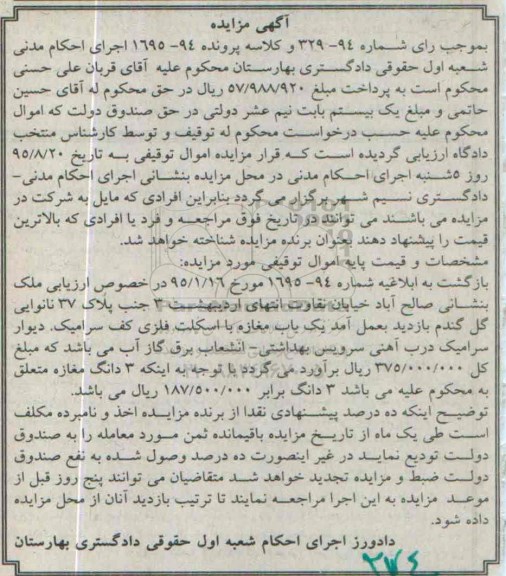 آگهی مزایده
بموجب رای شماره ۹۴- ۳۲۹ و کلاسه پرونده ۹۴- ۱۶۹۵ اجرای احکام مدنی
شعبه اول حقوقی دادگستری بهارستان محکوم علیه آقای قربان علی حسنی
محکوم است به پرداخت مبلغ ۵۷/۹۸۸/۹۲۰ ریال در حق محکوم له آقای حسین
حاتمی و مبلغ یک بیستم بابت نیم عشر دولتی در حق صندوق دولت که اموال
محکوم علیه حسب درخواست محکوم له توقیف و توسط کارشناس منتخب
دادگاه ارزیابی گردیده است که قرار مزایده اموال توقیفی به تاریخ ۹۵/۸/۲۰
روز ۵شنبه اجرای احکام مدنی در محل مزایده بنشانی اجرای احکام مدنی-
دادگستری نسیم شهر برگزار می گردد بنابراین افرادی که مایل به شرکت در
مزایده می باشند می توانند در تاریخ فوق مراجعه و فرد یا افرادی که بالاترین
قیمت را پیشنهاد دهند بعنوان برنده مزایده شناخته خواهد شد.
مشخصات و قیمت پایه اموال توقیفی مورد مزایده:
بازگشت به ابلاغیه شماره ۹۴- ۱۶۹۵ مورخ ۹۵/۱/۱۶ در خصوص ارزیابی ملک
بنشانی صالح آباد خیابان نظارت انتهای اردیبهشت ۳ جنب پلاک ۳۷ نانوایی
گل گندم بازدید بعمل آمد یک باب مغازه با اسکلت فلزی کف سرامیک دیوار
سرامیک درب آهنی سرویس بهداشتی- انشعاب برق گاز آب می باشد که مبلغ
کل ۳۷۵/۰۰۰/۰۰۰ ریال برآورد می گردد با توجه به اینکه ۳ دانگ مغازه متعلق
به محکوم علیه می باشد ۳ دانگ برابر ۱۸۷/۵۰۰/۰۰۰ ریال می باشد.
توضیح اینکه ده درصد پیشنهادی نقدا از برنده مزایده اخذ و نامبرده مکلف
است طی یک ماه از تاریخ مزایده باقیمانده ثمن مورد معامله را به صندوق
دولت تودیع نماید در غیر اینصورت ده درصد وصول شده به نفع صندوق
دولت ضبط و مزایده تجدید خواهد شد متقاضیان می توانند پنج روز قبل از
موعد مزایده به این اجرا مراجعه نمایند تا ترتیب بازدید آنان از محل مزایده
داده شود.
دادورز اجرای احکام شعبه اول حقوقی دادگستری بهارستان